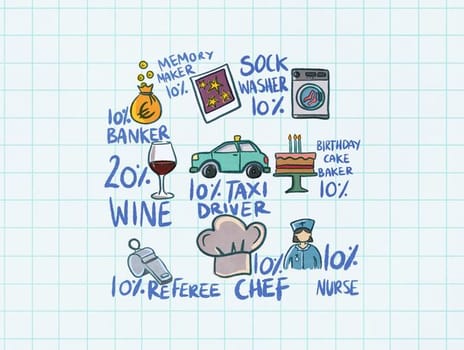 MEMORY
MAKER
10%
SOCK
WASHER
10%
10%
BANKER
20%
WINE
10% TAXI
DRIVER
BIRTHDAY
CAKE
BAKER
10%
10% REFEREE
10%
CHEF
10%
NURSE